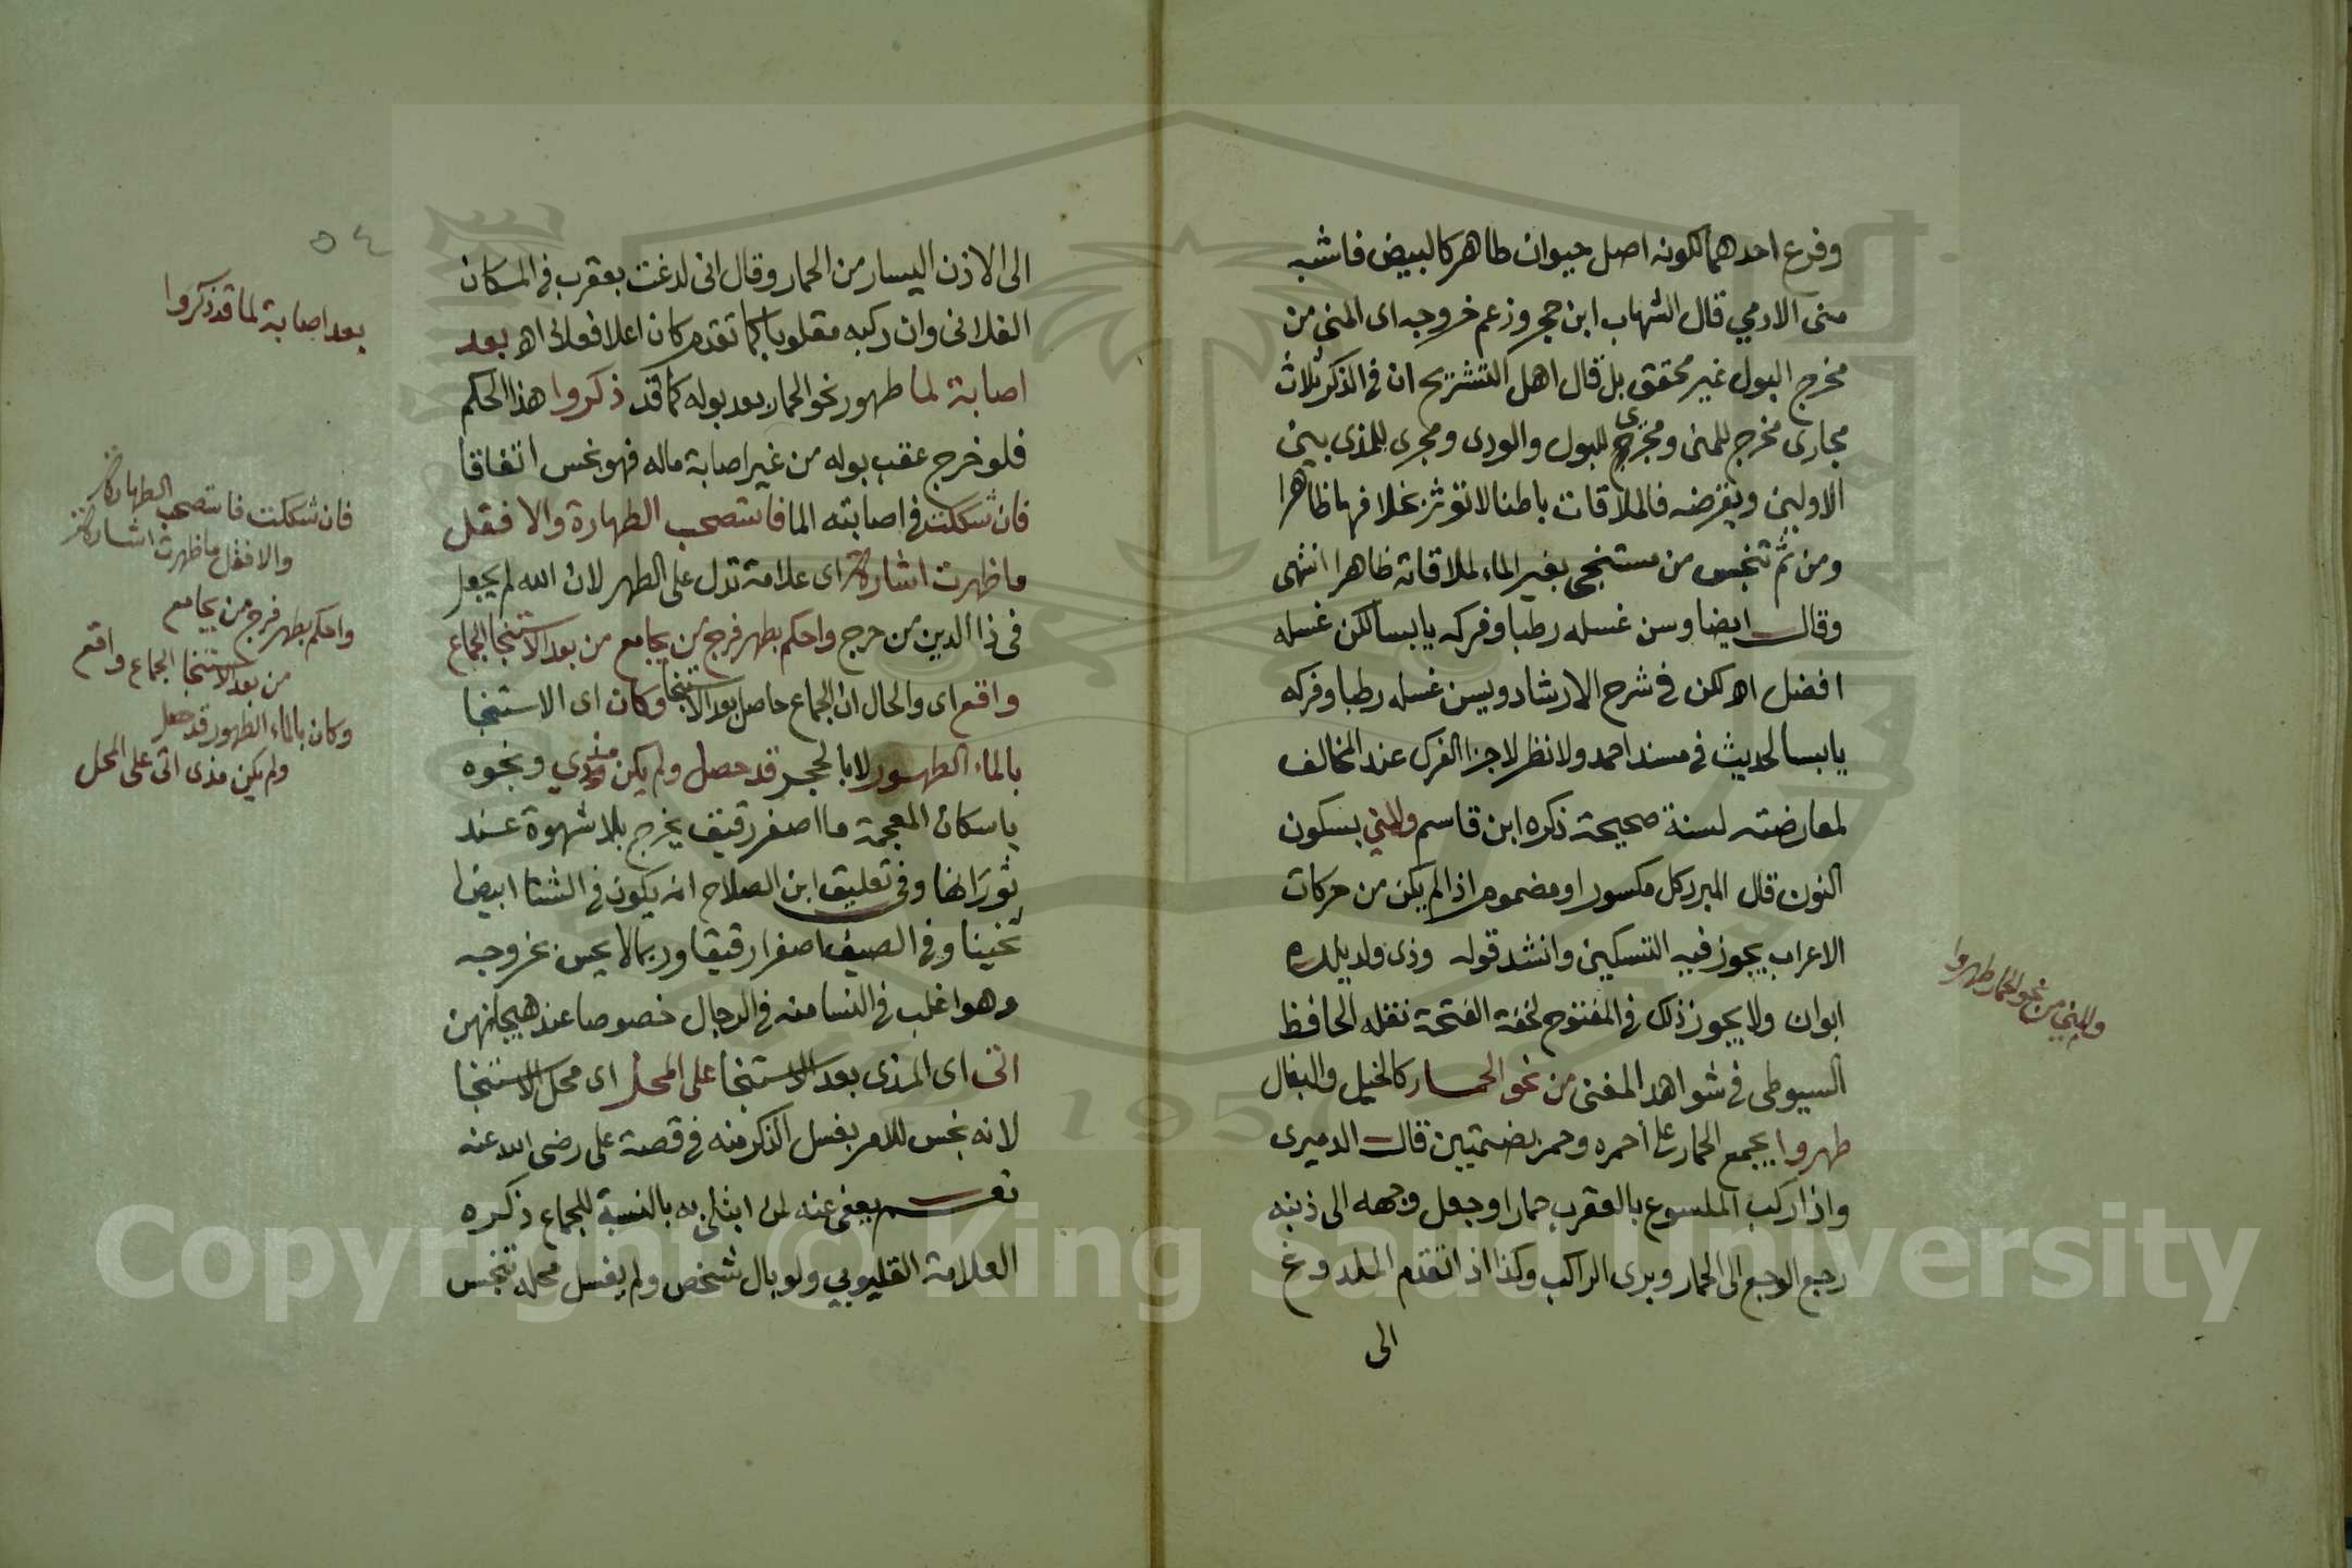 وفرع احدهما لكونه اصل حيوان طاهر كالبيض فاشبه
منى الادمي قال الشهاب ابن حجر وزعم خروجه اى المنى من
مخرج البول غير محقق بل قال اهل التشريح ان في الذكر ثلاث
مجارى مخرج للمنى ومجرى للبول والودى ومجرى للمذى بين
الاولين وبفرضه فالملاقات باطنا لا تؤثر بخلافها ظاهرا
ومن ثم تنجس من مستنجى بغير الماء لملاقاته ظاهرا انتهى
وقال ايضا وسن غسله رطبا وفركه يابسا لكن غسله
افضل اه لكن في شرح الارشاد ويسن غسله رطبا وفركه
يابسا لحديث في مسند احمد ولا نظر لاجزا الفرك عند المخالف
لمعارضته لسنة صحيحة ذكره ابن قاسم والمني بسكون
النون قال المبرد كل مكسور او مضموم اذا لم يكن من حركات
الاعراب يجوز فيه التسكين وانشد قوله وذى ولد يلده
ابوان ولا يجوز ذلك في المفتوح لخفة الفتحة نقله الحافظ
السيوطى في شواهد المغنى من نحو الحمار كالخيل والبغال
طهروا يجمع الحمار على أحمره وحمر بضمتين قال الدميرى
واذا ركب الملسوع بالعقرب حمارا وجعل وجهه الى ذنبه
رجع الوجع الى الحمار وبرى الراكب وكذا اذا تقدم الملدوغ
الى
والمني من نحو الحمار طهروا
٥٤
الى الاذن اليسار من الحمار وقال انى لدغت بعقرب في المكان
الفلانى وان ركبه مقلوبا كما تقدم كان اعلا فوالى اه بعد
اصابة لما طهور نحو الحمار بعد بوله كما قد ذكروا هذا الحكم
فلو خرج عقب بوله من غير اصابة ماله فهو نجس اتفاقا
فان شككت في اصابته الما فاستصحب الطهارة والا فقل
ما ظهرت اشارة اى علامة تدل على الطهر لان الله لم يجعل
في ذا الدين من حرج واحكم بطهر فرج من يجامع من بعد الاستنجا الجماع
واقع اى والحال ان الجماع حاصل بعد الاستنجا وكان اى الاستنجا
بالماء الطهور لا بالحجر قد حصل ولم يكن مذي ونحوه
باسكان المعجمة ما اصفر رقيق يخرج بلا شهوة عند
ثورانها وفي تعليق ابن الصلاح انه يكون في الشتا ابيض
ثخينا وفي الصيف اصفرا رقيقا وربما لا يحس بخروجه
وهو اغلب في النسا منه في الرجال خصوصا عند هيجانهن
اتى اى المذى بعد الاستنجا على المحل اى محل الاستنجا
لانه نجس للامر بغسل الذكر منه في قصة على رضى الله عنه
نعم يعفى عنه لمن ابتلى به بالنسبة للجماع ذكره
العلامة القليوبي ولو بال شخص ولم يغسل محله تنجس
بعد اصابة لما قد ذكروا
فان شككت فاستصحب الطهارة
والا فقل ما ظهرت اشارة
واحكم بطهر فرج من يجامع
من بعد الاستنجا الجماع واقع
وكان بالماء الطهور قد حصل
ولم يكن مذى اتى على المحل
Copyright © King Saud University
1957